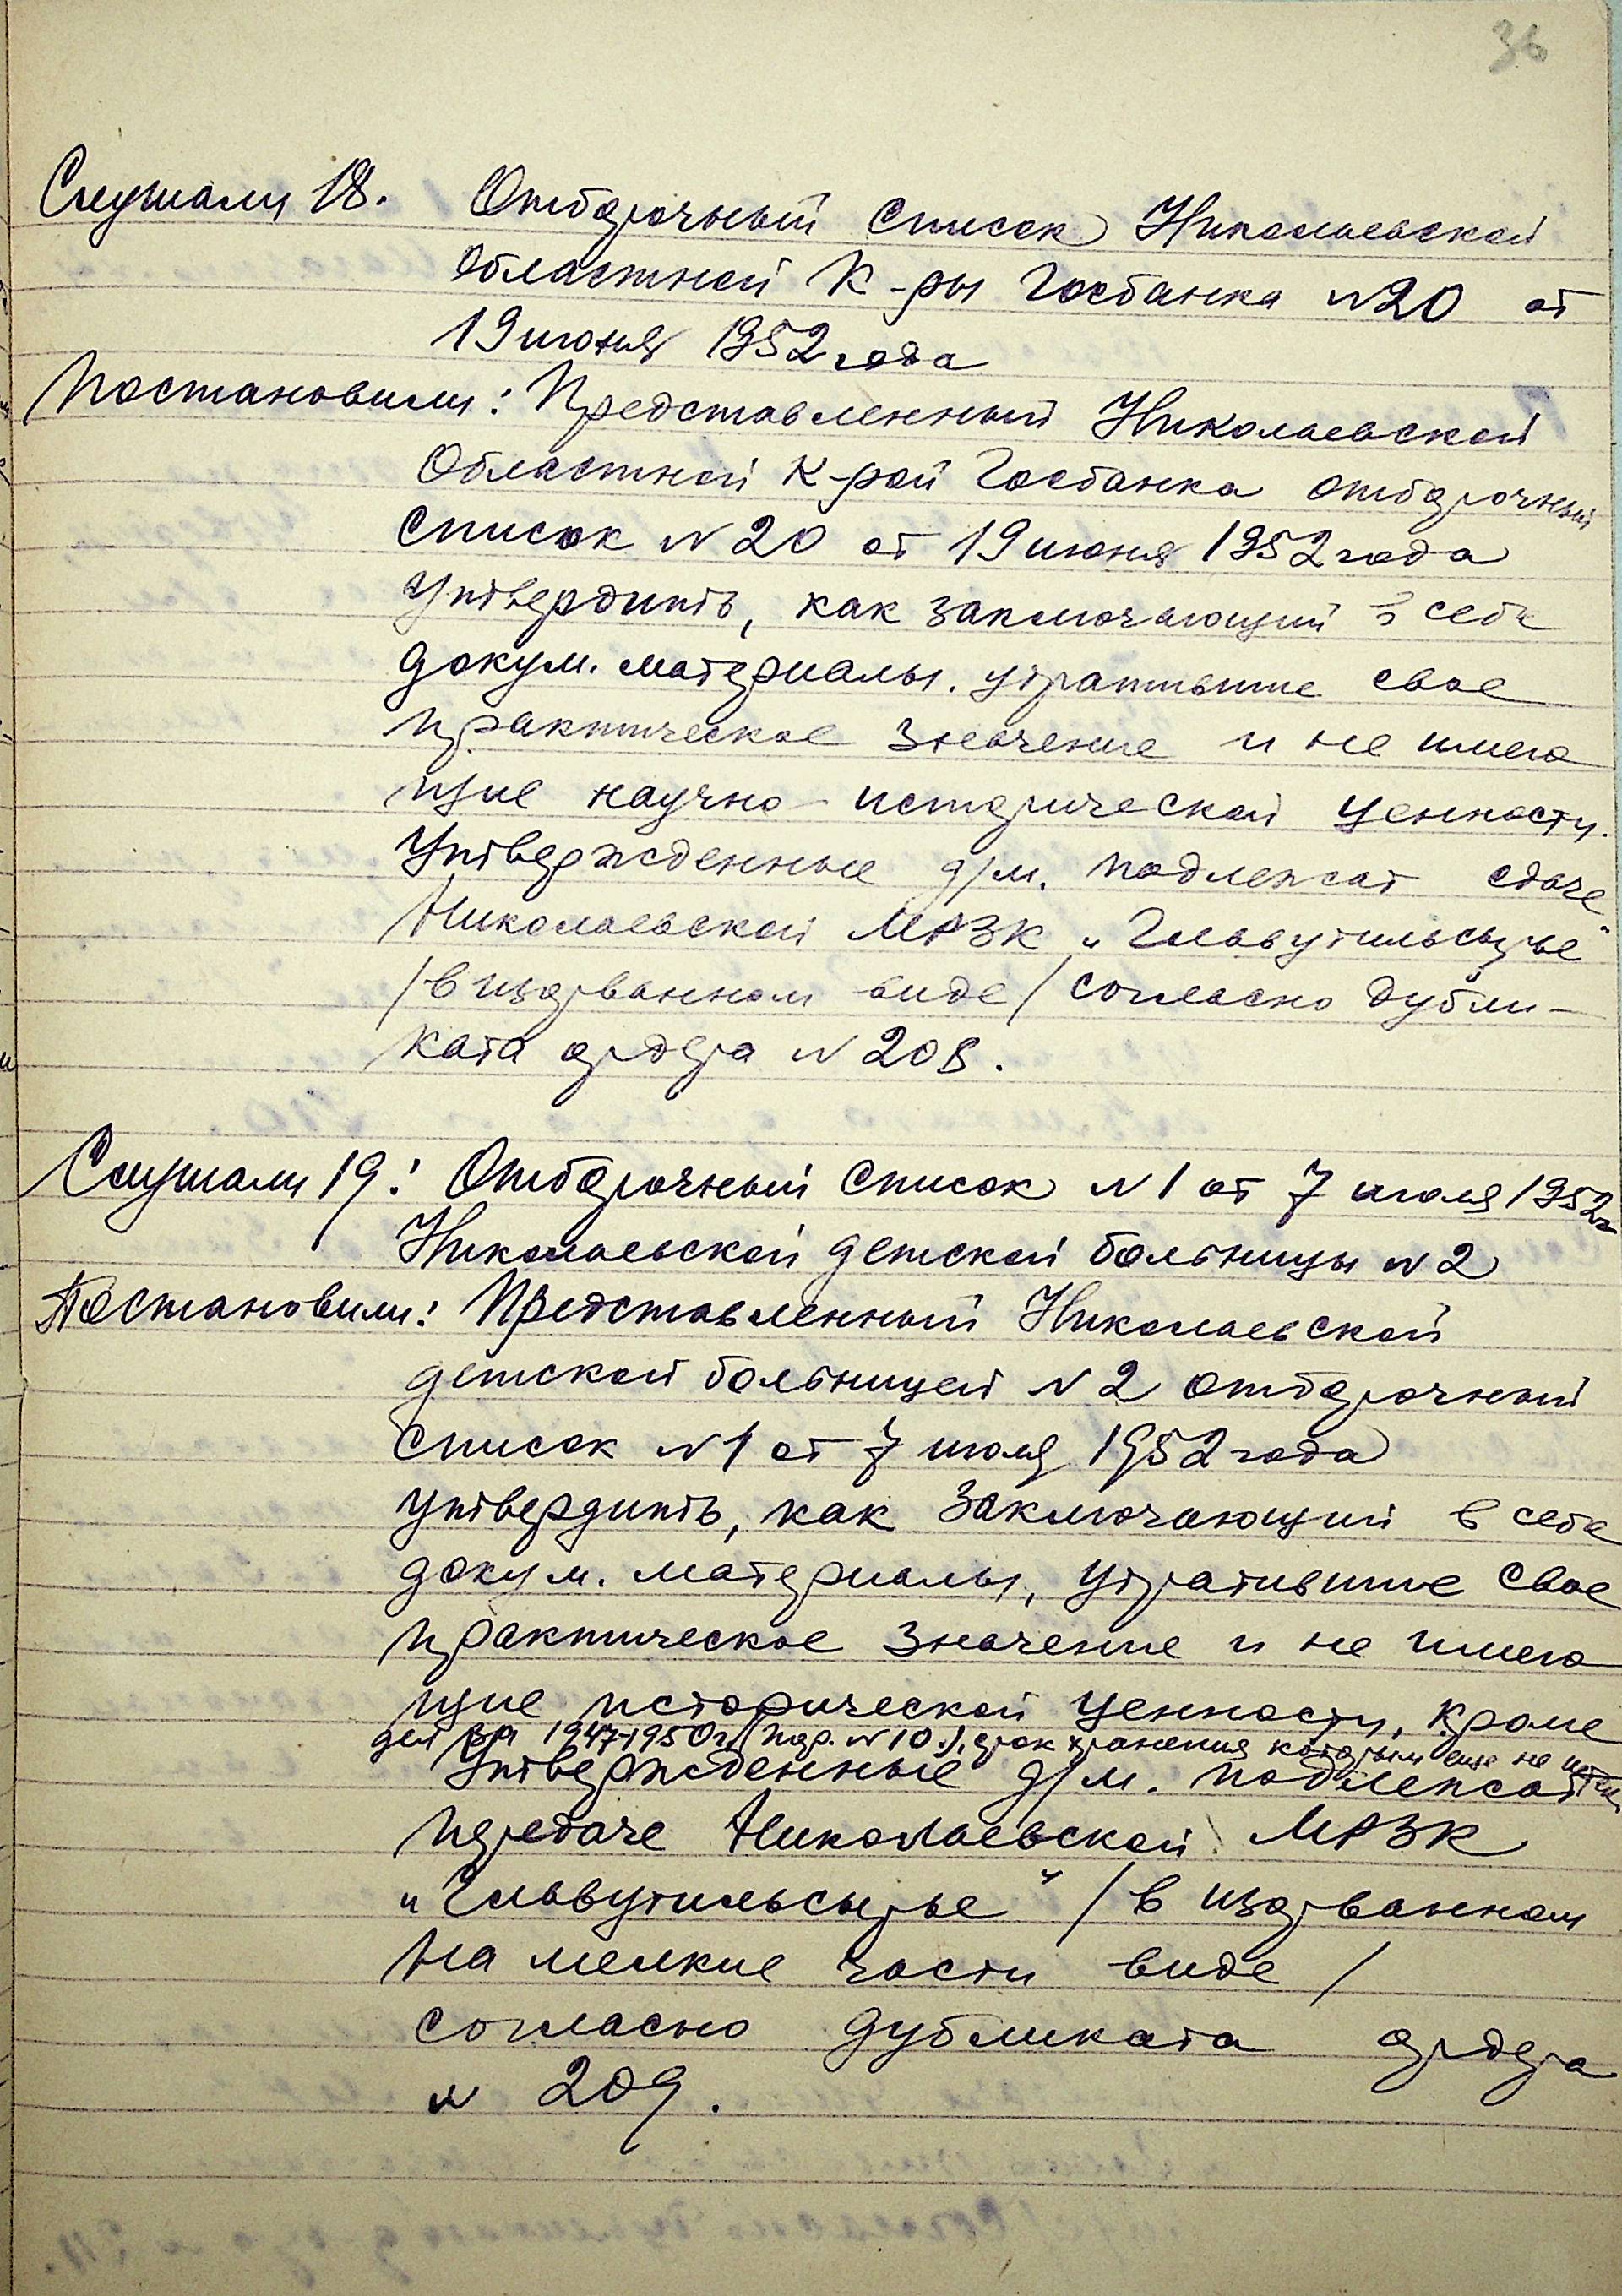 36
Слушали 18. Отборочный список Николаевской
Областной К-ры Госбанка №20 от
19 июня 1952 года
Постановили: Представленный Николаевской
Областной К-рой Госбанка отборочный
список №20 от 19 июня 1952 года
утвердить, как заключающий в себе
докум. материалы. утратившие свое
практическое значение и не имею
щие научно-исторической ценности.
Утвержденные д/м. подлежат сдаче
Николаевской МРЗК „Главутильсырье"
/в изорванном виде/ согласно дубли-
ката ордера №208.
Слушали 19: Отборочный список №1 от 7 июля 1952г
Николаевской детской больницы №2
Постановили: Представленный Николаевской
детской больницей №2 отборочный
список №1 от 7 июля 1952 года
утвердить, как заключающий в себе
докум. материалы, утратившие свое
практическое значение и не имею
щие исторической ценности, кроме
дел за 1947-1950г. (пор. №10.), срок хранения которым еще не истек
Утвержденные д/м. подлежат
передаче Николаевской МРЗК
„Главутильсырье" /в изорванном
на мелкие части виде/
согласно дубликата ордера
№ 209.